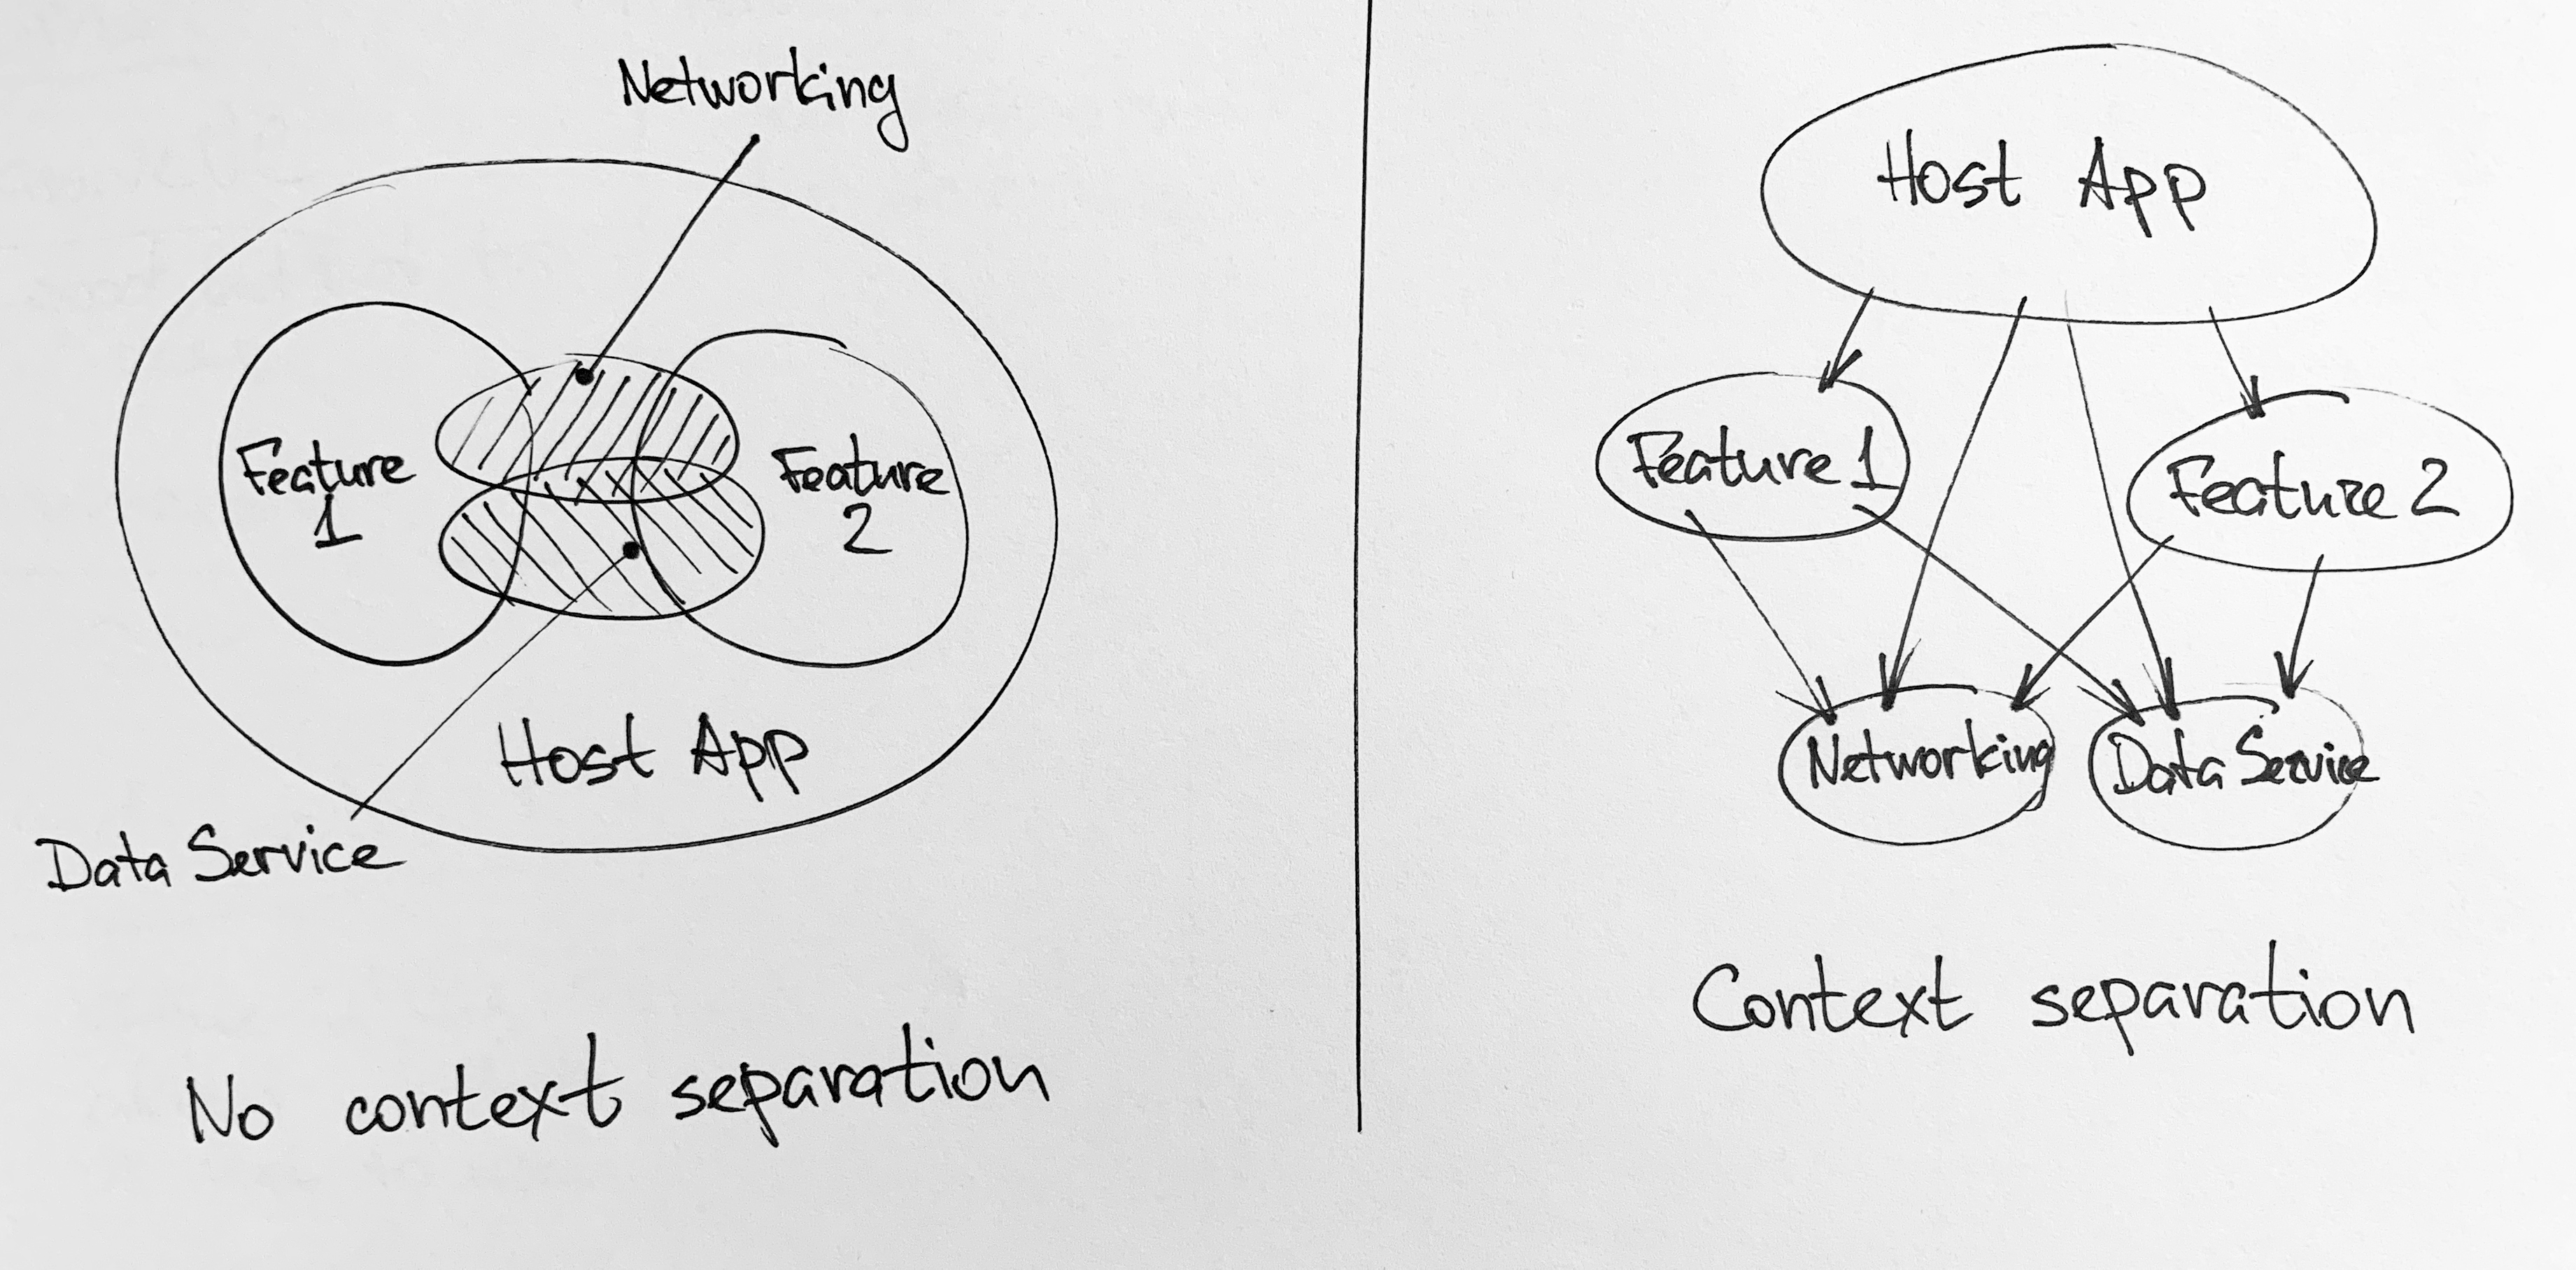 Networking
Feature
1
Feature
2
Host App
Data Service
No context separation
Host App
Feature 1
Feature 2
Networking
Data Service
Context separation